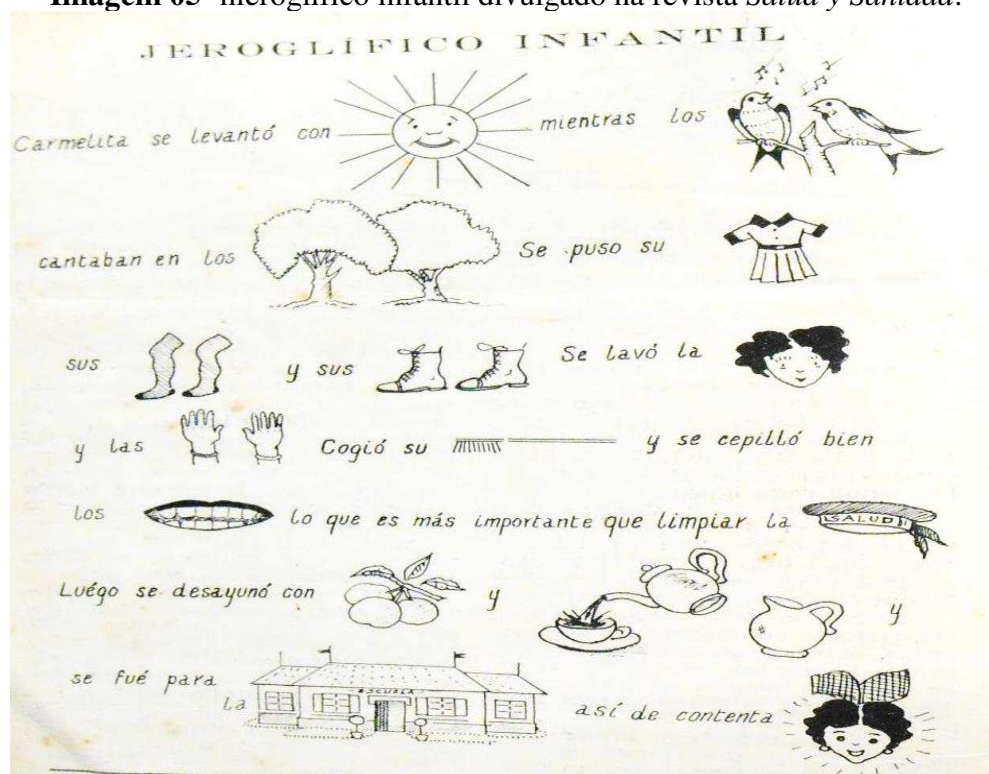 Imagem infantil divulgado na revista Salud y Sanidad.
JEROGLÍFICO INFANTIL
Carmelita se levantó con mientras los
cantaban en los Se puso su
sus y sus Se lavó la
y las Cogió su y se cepilló bien
los lo que es más importante que limpiar la SALUD
Luégo se desayunó con y y
se fué para la ESCUELA así de contenta